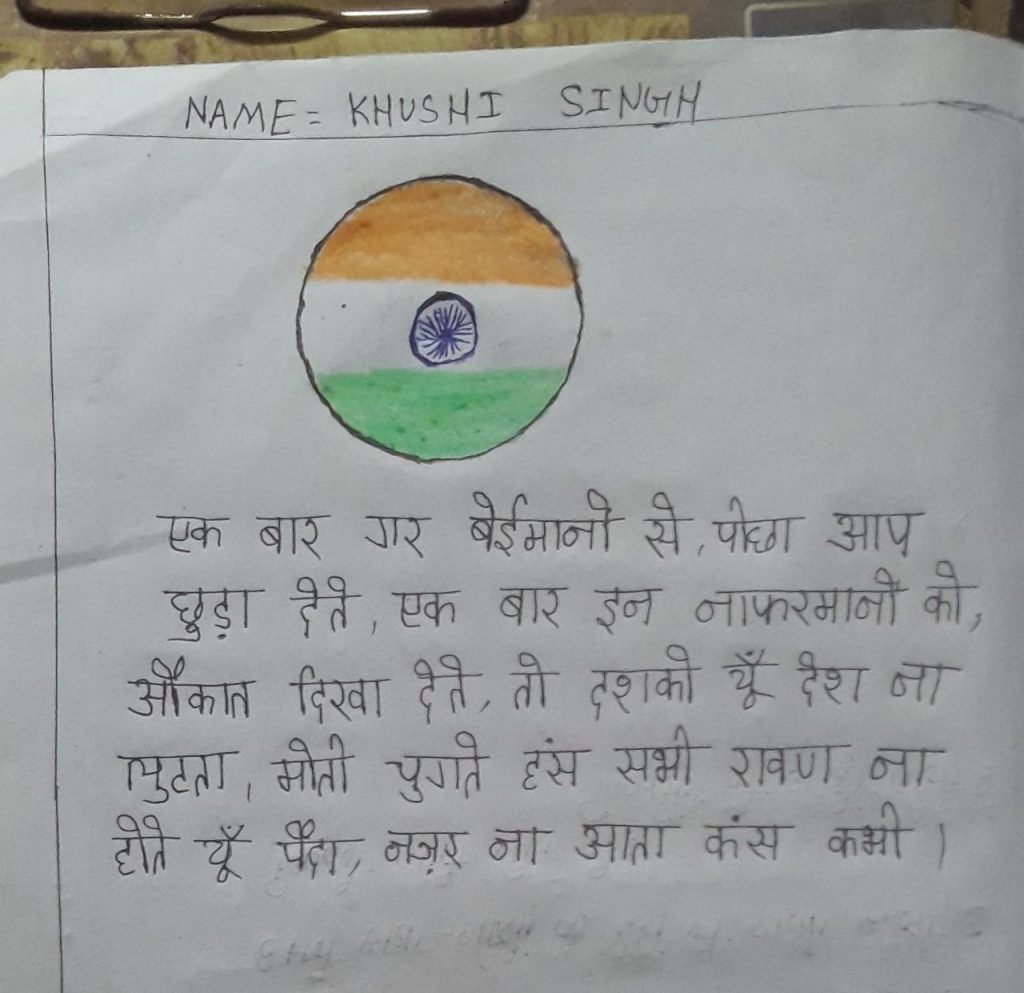 NAME = KHUSHI SINGH
एक बार गर बेईमानो से, पीछा आप
छुड़ा देते, एक बार इन नाफरमानो को,
औकात दिखा देते, तो दशको यूँ देश ना
लुटता, मोती चुगते हंस सभी रावण ना
होते यूँ पैदा, नज़र ना आता कंस कभी।